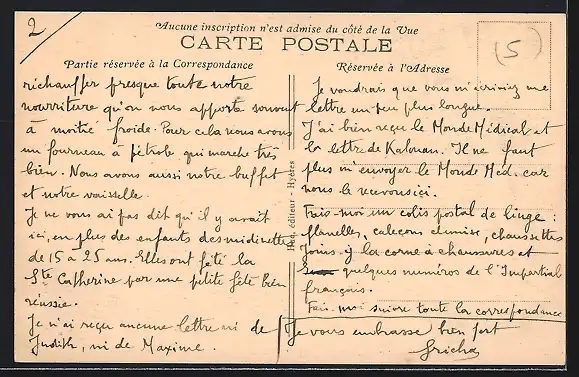 2
Aucune inscription n'est admise du côté de la Vue
CARTE POSTALE
(5)
Partie réservée à la Correspondance
Réservée à l'Adresse
réchauffer presque toute notre
nourriture qu'on nous apporte souvent
à moitié froide. Pour cela nous avons
un fourneau à pétrole qui marche très
bien. Nous avons aussi notre buffet
et notre vaisselle.
Je ne vous ai pas dit qu'il y avait
ici, en plus des enfants des midinettes
de 15 à 25 ans. Elles ont fêté la
Ste Catherine par une petite fête bien
réussie.
Je n'ai reçu aucune lettre ni de
Judith, ni de Maxime.
éditeur - Hyères
Je voudrais que vous m'écriviez une
lettre un peu plus longue.
J'ai bien reçu le Monde Médical et
la lettre de Kalman. Il ne faut
plus m'envoyer le Monde Med. car
nous le recevons ici.
Fais-moi un colis postal de linge :
flanelles, caleçons chemise, chaussettes
Joins-y la corne à chaussures et
quelques numéros de l'Impartial
français.
Fais-moi suivre toute la correspondance
Je vous embrasse bien fort
Gricha